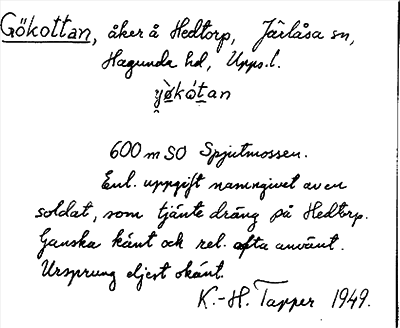 Gökottan, åker å Hedtorp, Järlåsa sn,
Hagunda hd, Upps.l.
yø̀kót̠an
600 m SO Spjutmossen.
Enl. uppgift namngivet av en
soldat, som tjänte dräng på Hedtorp.
Ganska känt och rel. ofta använt.
Ursprung eljest okänt.
K.-H. Tapper 1949.